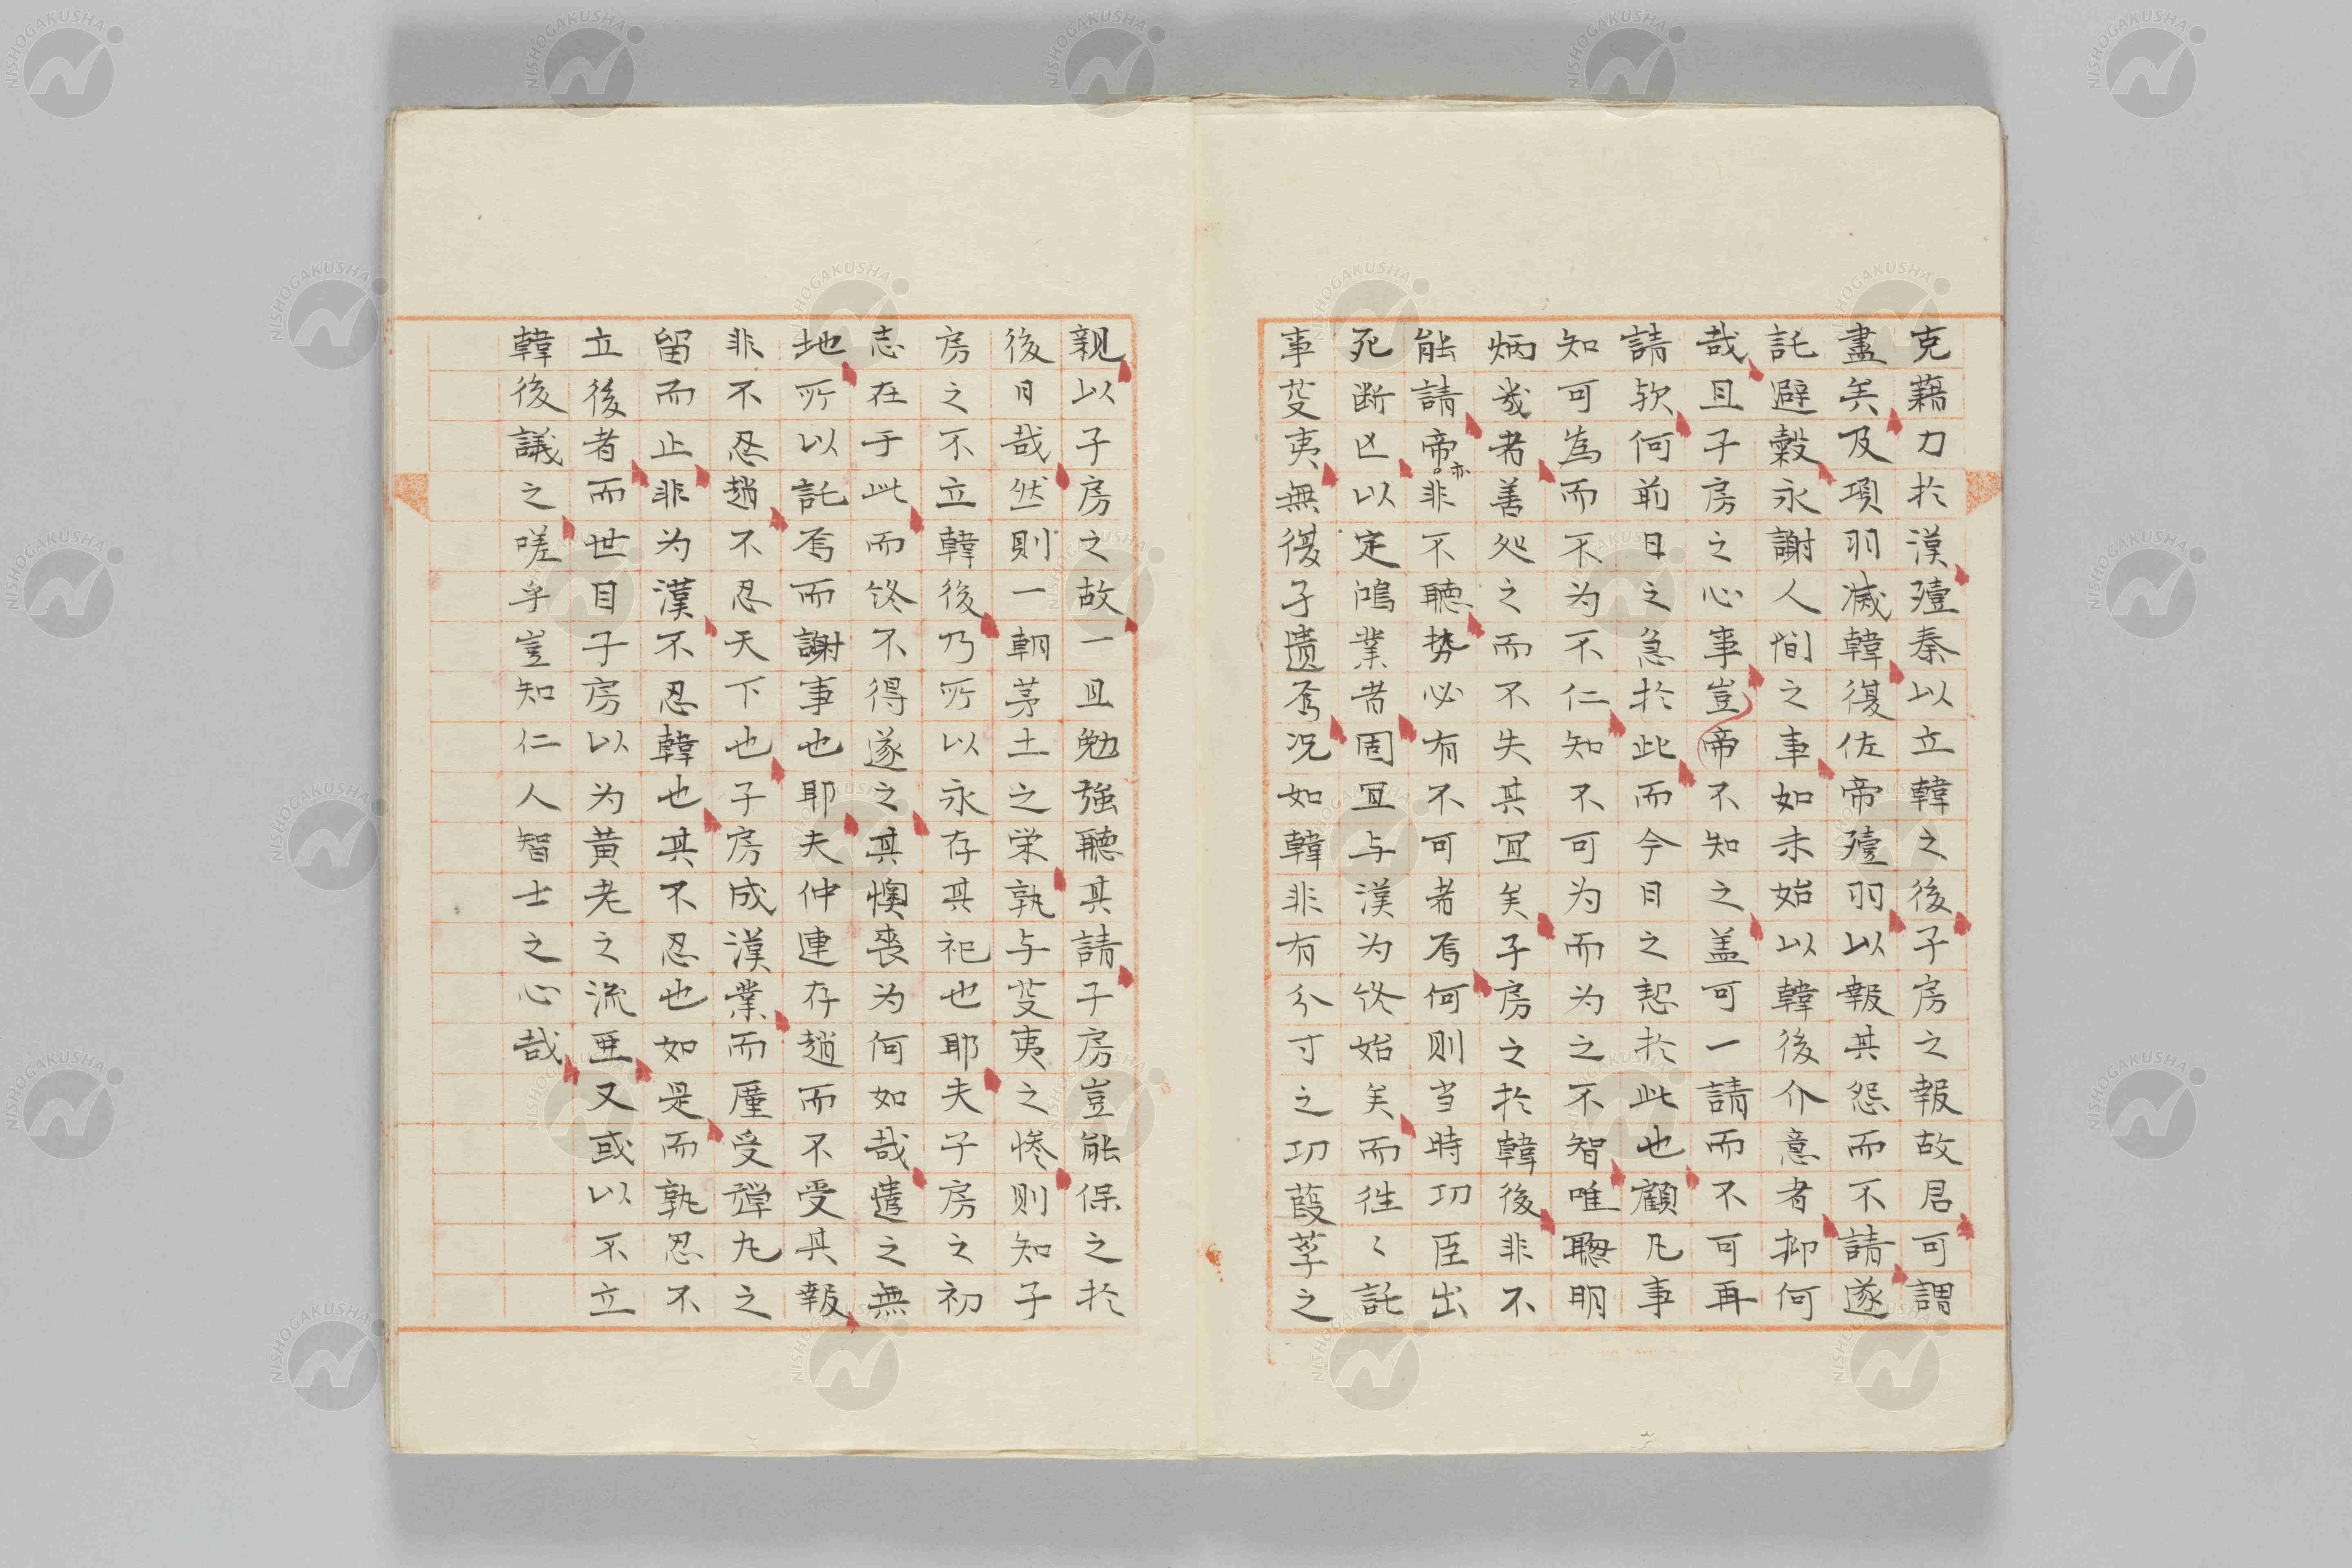 克藉力於漢殪秦以立韓之後子房之報故君可謂
盡矣及項羽滅韓復佐帝殪羽以報其怨而不請遂
託避穀永謝人間之事如未始以韓後介意者抑何
哉且子房之心事豈帝不知之盖可一請而不可再
請欤何前日之急於此而今日之恝於此也顧凡事
知可為而不为不仁知不可为而为之不智唯聰明
炳幾者善処之而不失其冝矣子房之於韓後非不
能請帝亦非不聽勢必有不可者焉何则当時功臣出
死断亡以定鴻業者固冝与漢为终始矣而徃〻託
事芟夷無復孑遺焉况如韓非有分寸之功葭莩之
親以子房之故一且勉強聽其請子房豈能保之於
後日哉然則一朝茅土之栄孰与芟夷之惨则知子
房之不立韓後乃所以永存其祀也耶夫子房之初
志在于此而终不得遂之其懊喪为何如哉遣之無
地所以託焉而謝事也耶夫仲連存趙而不受其報
非不忍趙不忍天下也子房成漢業而厪受弾丸之
留而止非为漢不忍韓也其不忍也如是而孰忍不
立後者而世目子房以为黄老之流亜又或以不立
韓後議之嗟乎豈知仁人智士之心哉
NISHOGAKUSHA